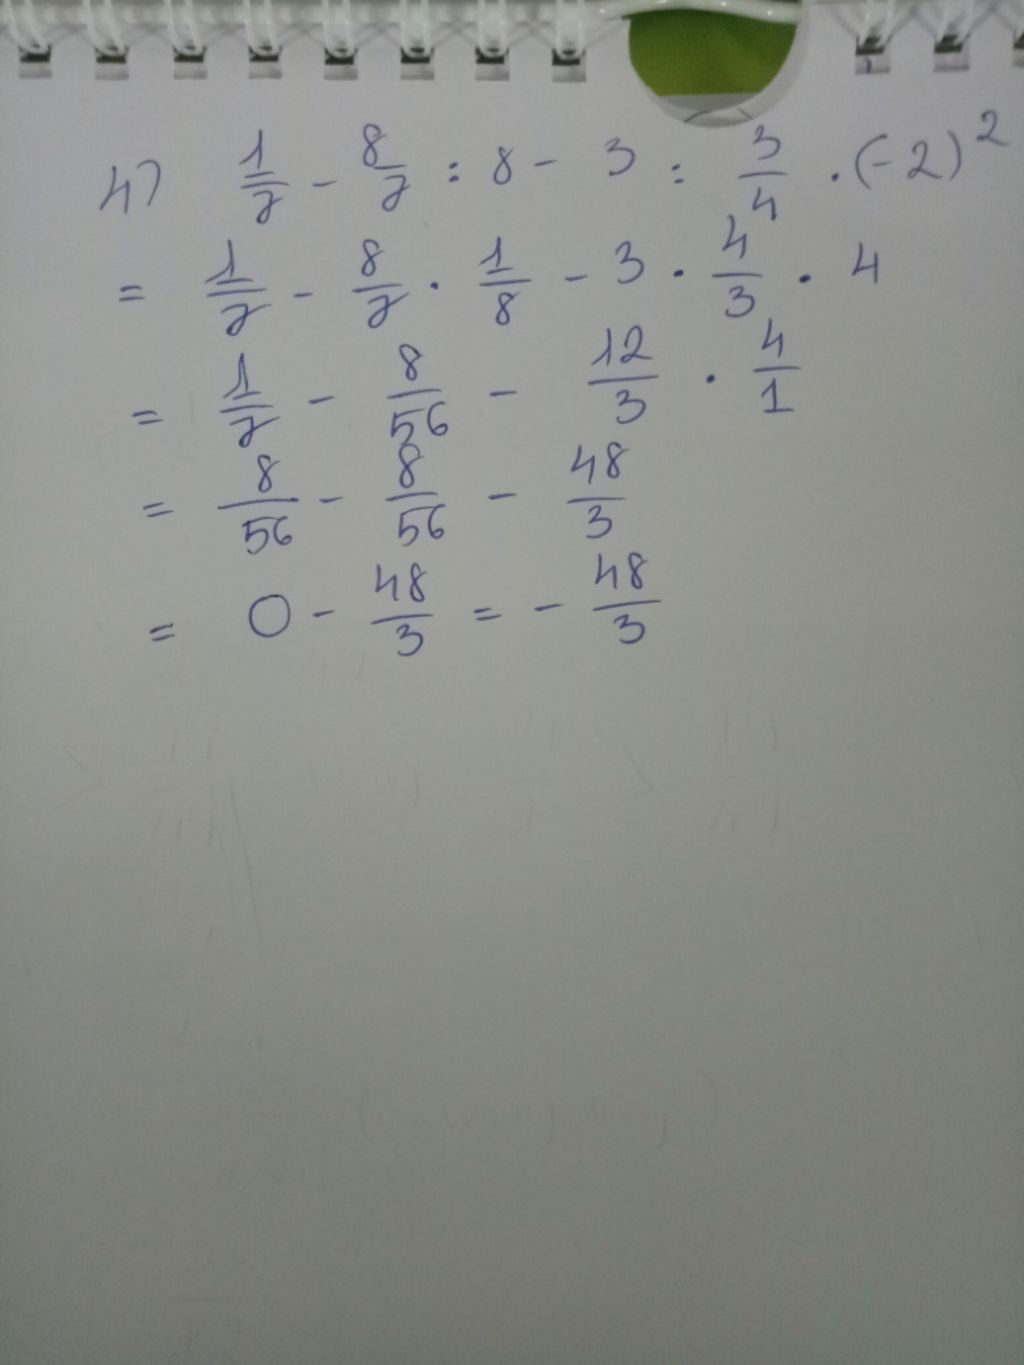 4) 1/7 - 8/7 : 8 - 3 : 3/4 · (-2)²
= 1/7 - 8/7 · 1/8 - 3 · 4/3 · 4
= 1/7 - 8/56 - 12/3 · 4/1
= 8/56 - 8/56 - 48/3
= 0 - 48/3 = - 48/3